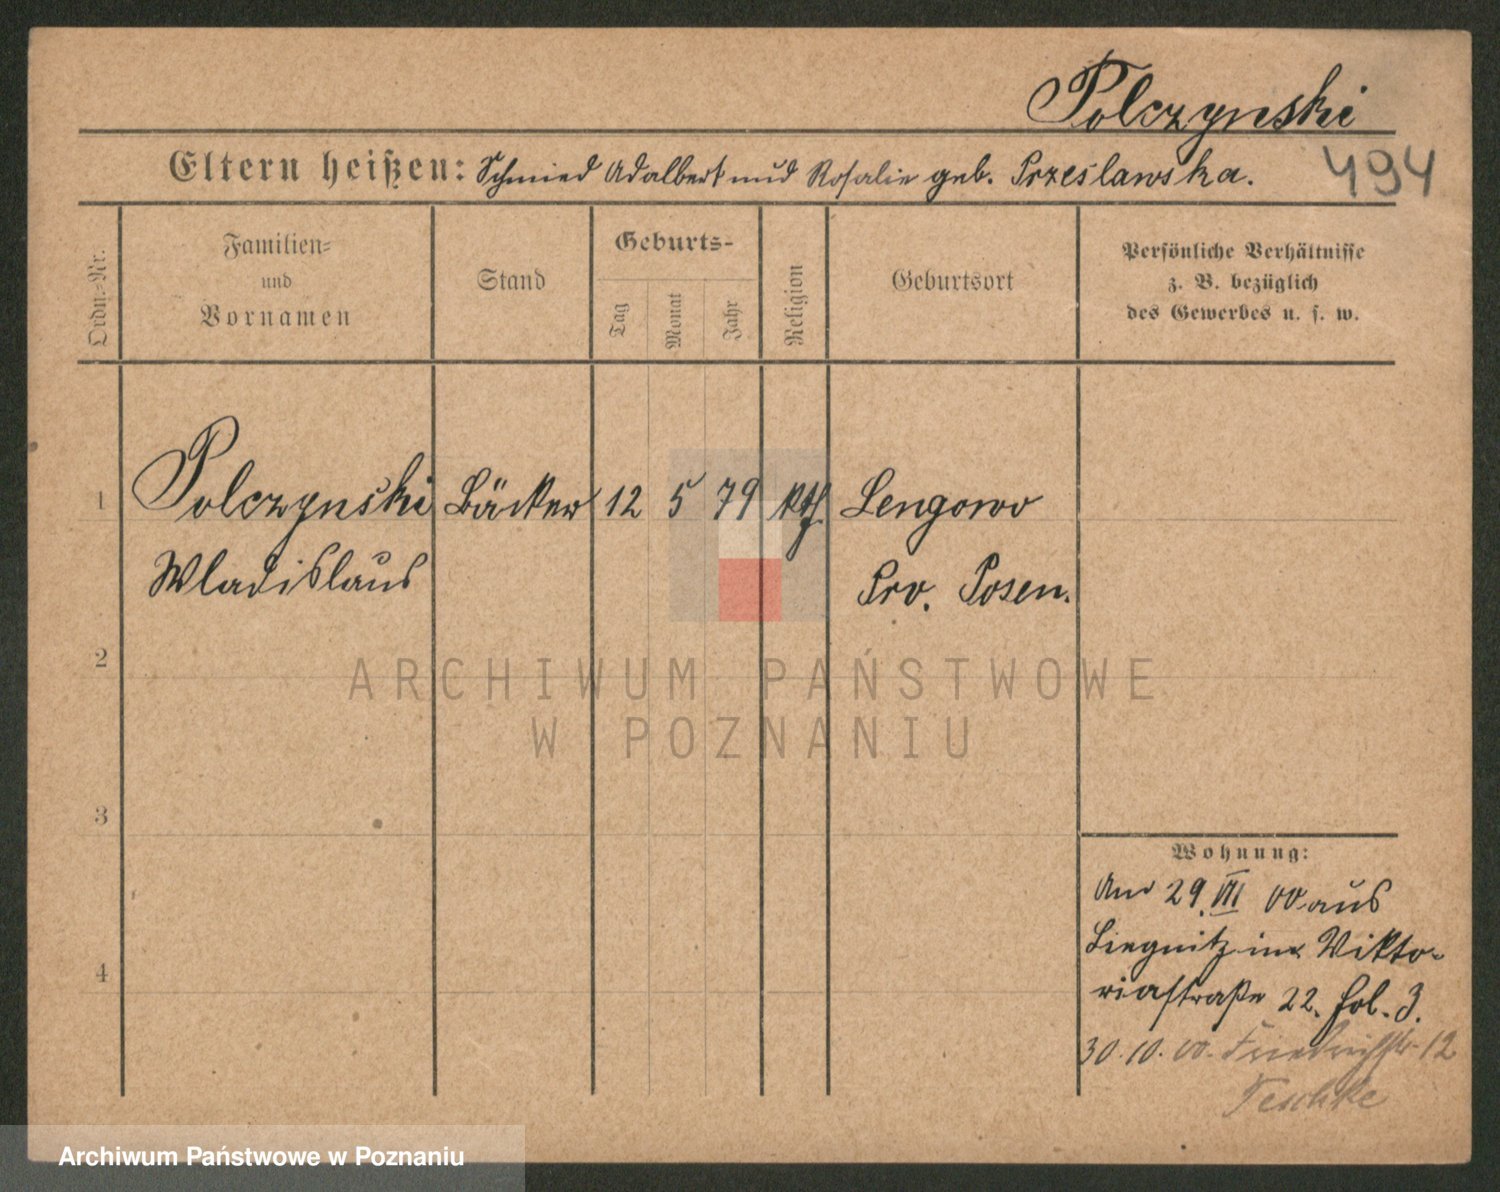 Polczynski
Eltern heißen: Schmied Adalbert und Rosalie geb. Przeslawska.
494
Ordn.-Nr.
Familien-
und
Vornamen
Stand
Geburts-
Tag
Monat
Jahr
Religion
Geburtsort
Persönliche Verhältnisse
z. B. bezüglich
des Gewerbes u. s. w.
1 Polczynski Bäcker 12 5 79 kth. Lengowo
Wladislaus Prv. Posen.
2
3
4
Wohnung:
An 29. VII 00 aus
Liegnitz in Vikto-
riastraße 22. Hol. 3.
30.10.00. Friedrichstr. 12
Teschke
ARCHIWUM PAŃSTWOWE
W POZNANIU
Archiwum Państwowe w Poznaniu